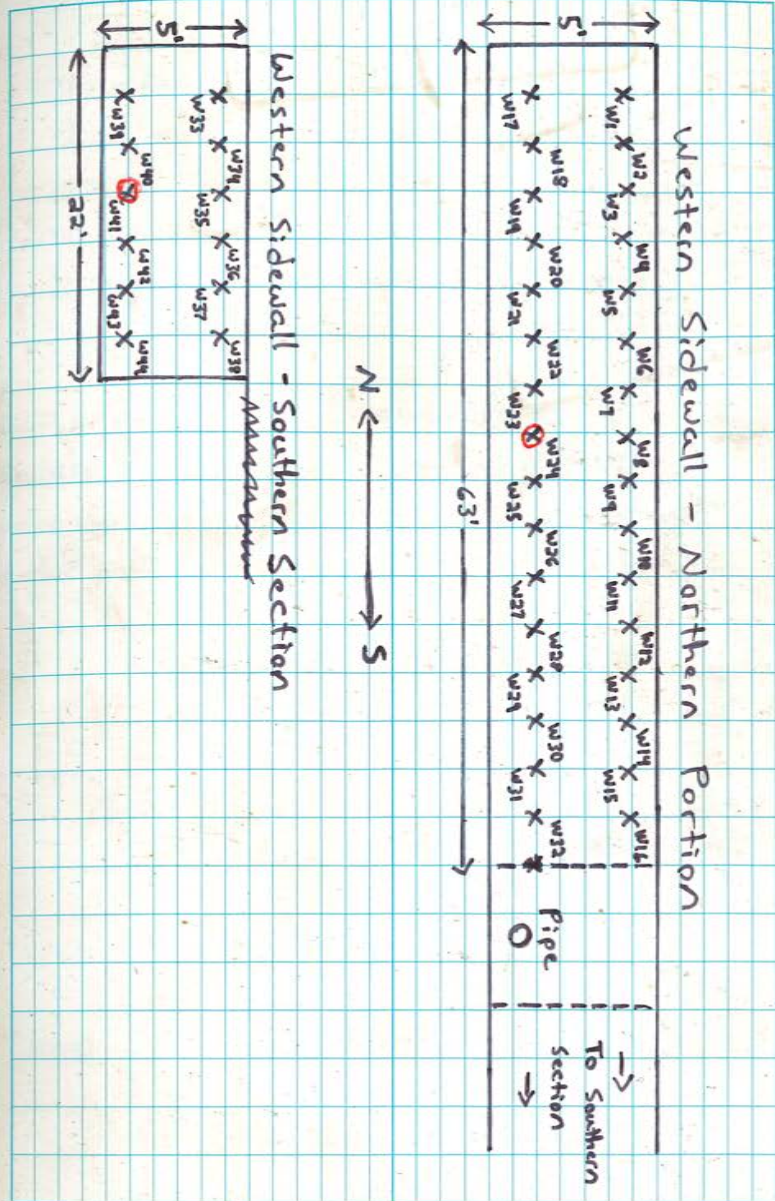 Western Sidewall - Northern Portion
5'
W1 W2 W3 W4 W5 W6 W7 W8 W9 W10 W11 W12 W13 W14 W15 W16
W17 W18 W19 W20 W21 W22 W23 W24 W25 W26 W27 W28 W29 W30 W31 W32
Pipe
To Southern
Section
63'
N
S
Western Sidewall - Southern Section
5'
W33 W34 W35 W36 W37 W38
W39 W40 W41 W42 W43 W44
22'